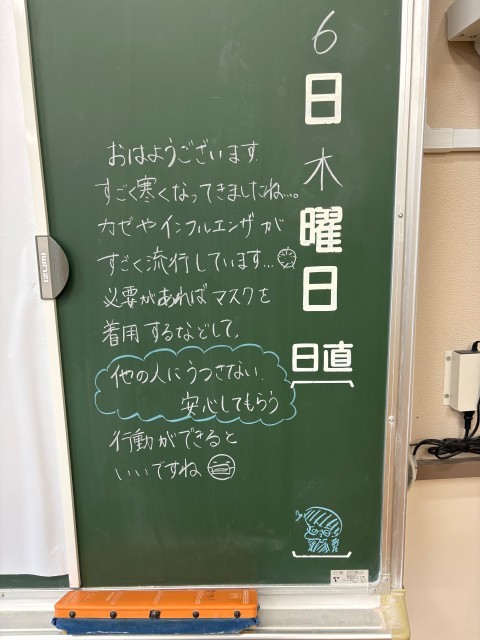 6
日
木
曜
日
日直
おはようございます.
すごく寒くなってきましたね…。
カゼやインフルエンザが
すごく流行しています…
必要があればマスクを
着用するなどして、
他の人にうつさない.
安心してもらう
行動ができると
いいですね
IZUMI